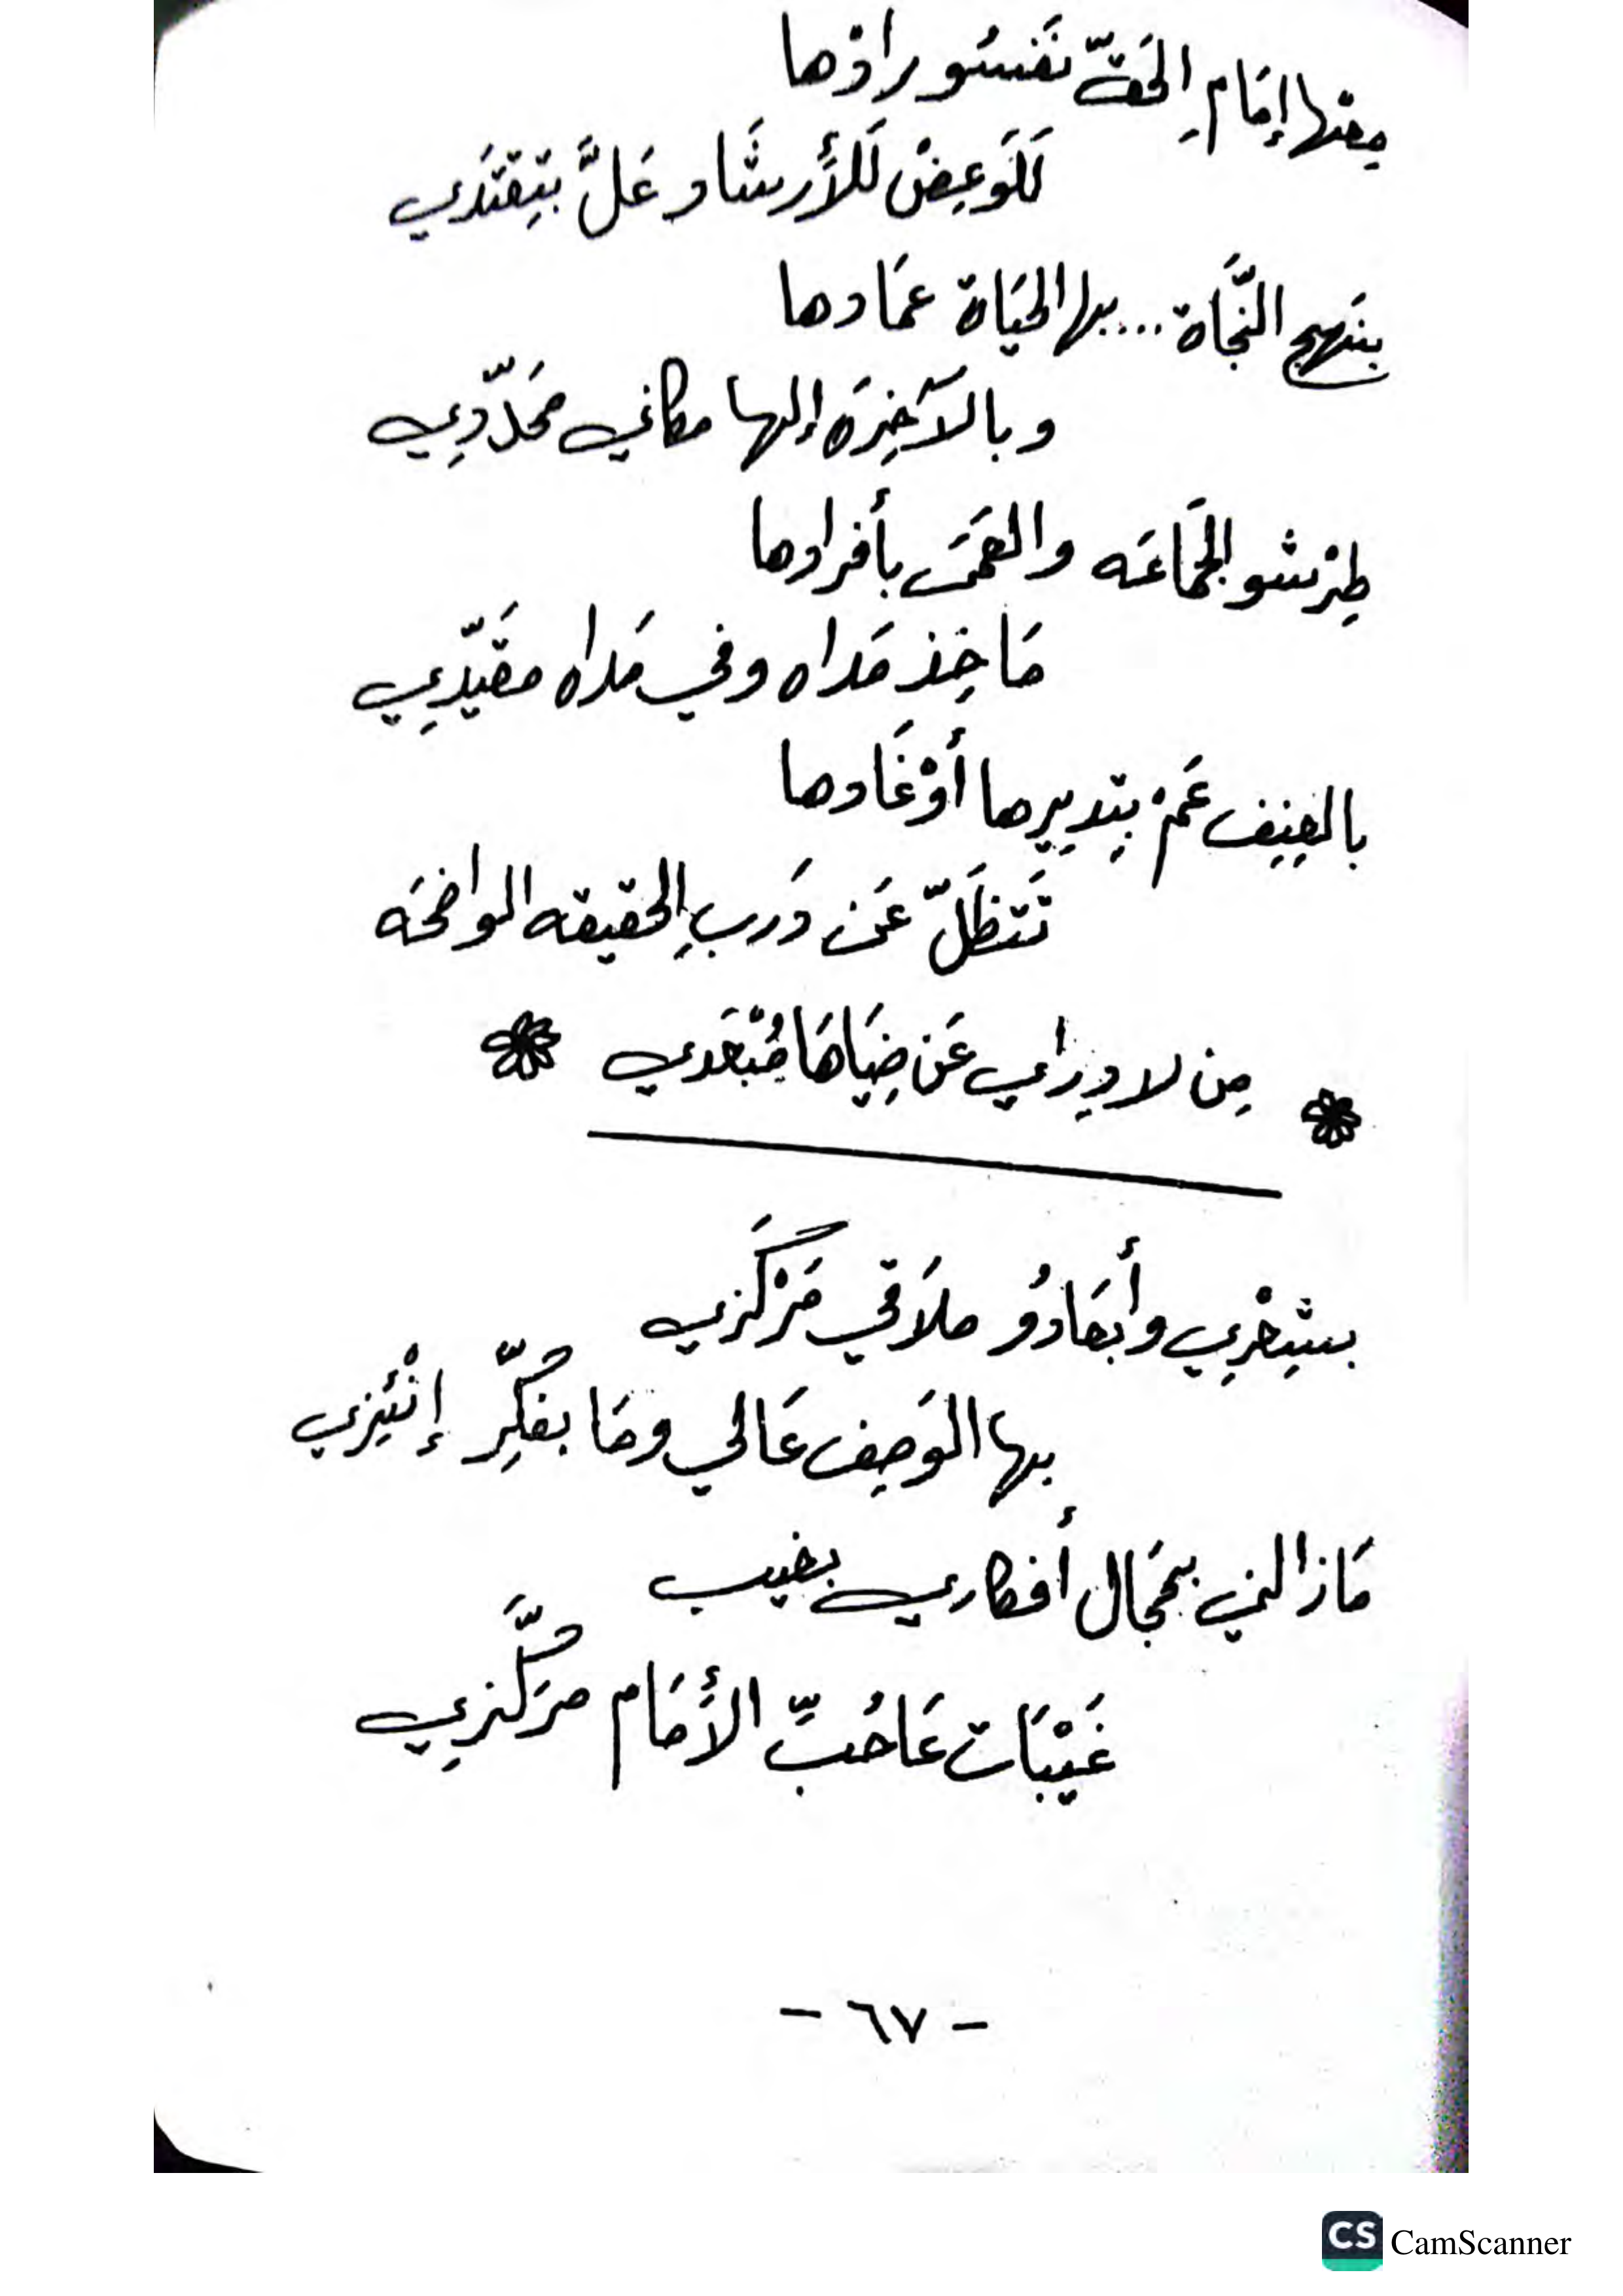 معنها إمَامِ الحَقّ نَفسُو رادْها
لَلوَعِضْ لَلأرشَاد عَلَّ بتِقتَدي
بنَهج النّجَاة ... بها الحيَاة عمَادها
وبالآخِرَه إلها مكاني محَدّدِي
طِرْشو الجمَاعَه والعَمَى بأفرادها
مَاخِذ مَداه وفي مَداه مقَيّدِي
بالعِنِف عَمْ بتِديِرها أوْغَادها
تَتضَلّ عَن دَربِ الحقيقه الواضحَه
مِن لا دِرِايي عَن ضِيَاهَا مُبْعَدي
بشِعْرِي وأبعَادُو ملاَقي مَرْكَزي
بها الوَصِف عَالي ومَا بفَكِّر إنْئِزي
مَازا لني بمجَال أفكاري بغيب
غَيْبَات عَا حُبِّ الأمَام مرَكَّزِي
- ٦٧ -
CS CamScanner